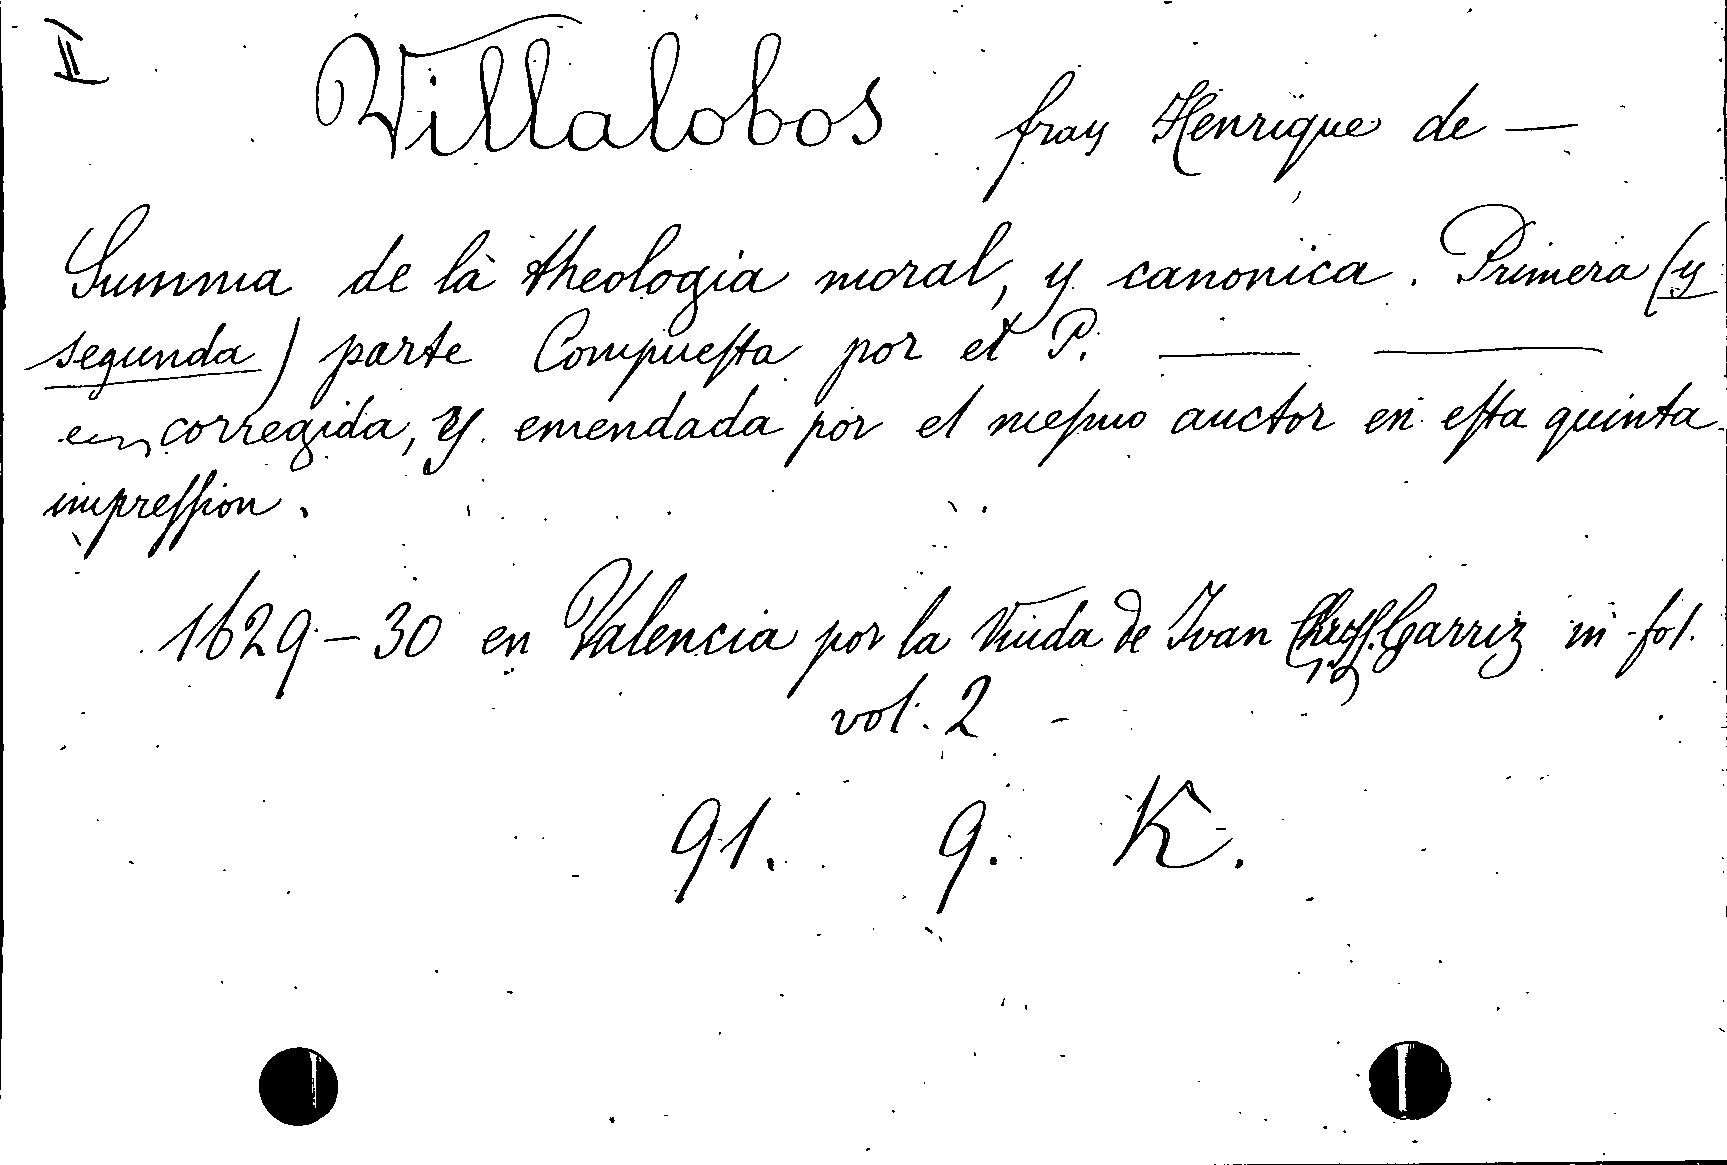 II Villalobos fray Henrique de —
Summa de la theologia moral, y canonica. Primera (y
segunda) parte Compuesta por el P. — —
corregida, y emendada por el mesmo auctor en esta quinta
impression.
1629-30 en Valencia por la Viuda de Ivan Garriz in-fol.
vol. 2
91. 9. K.